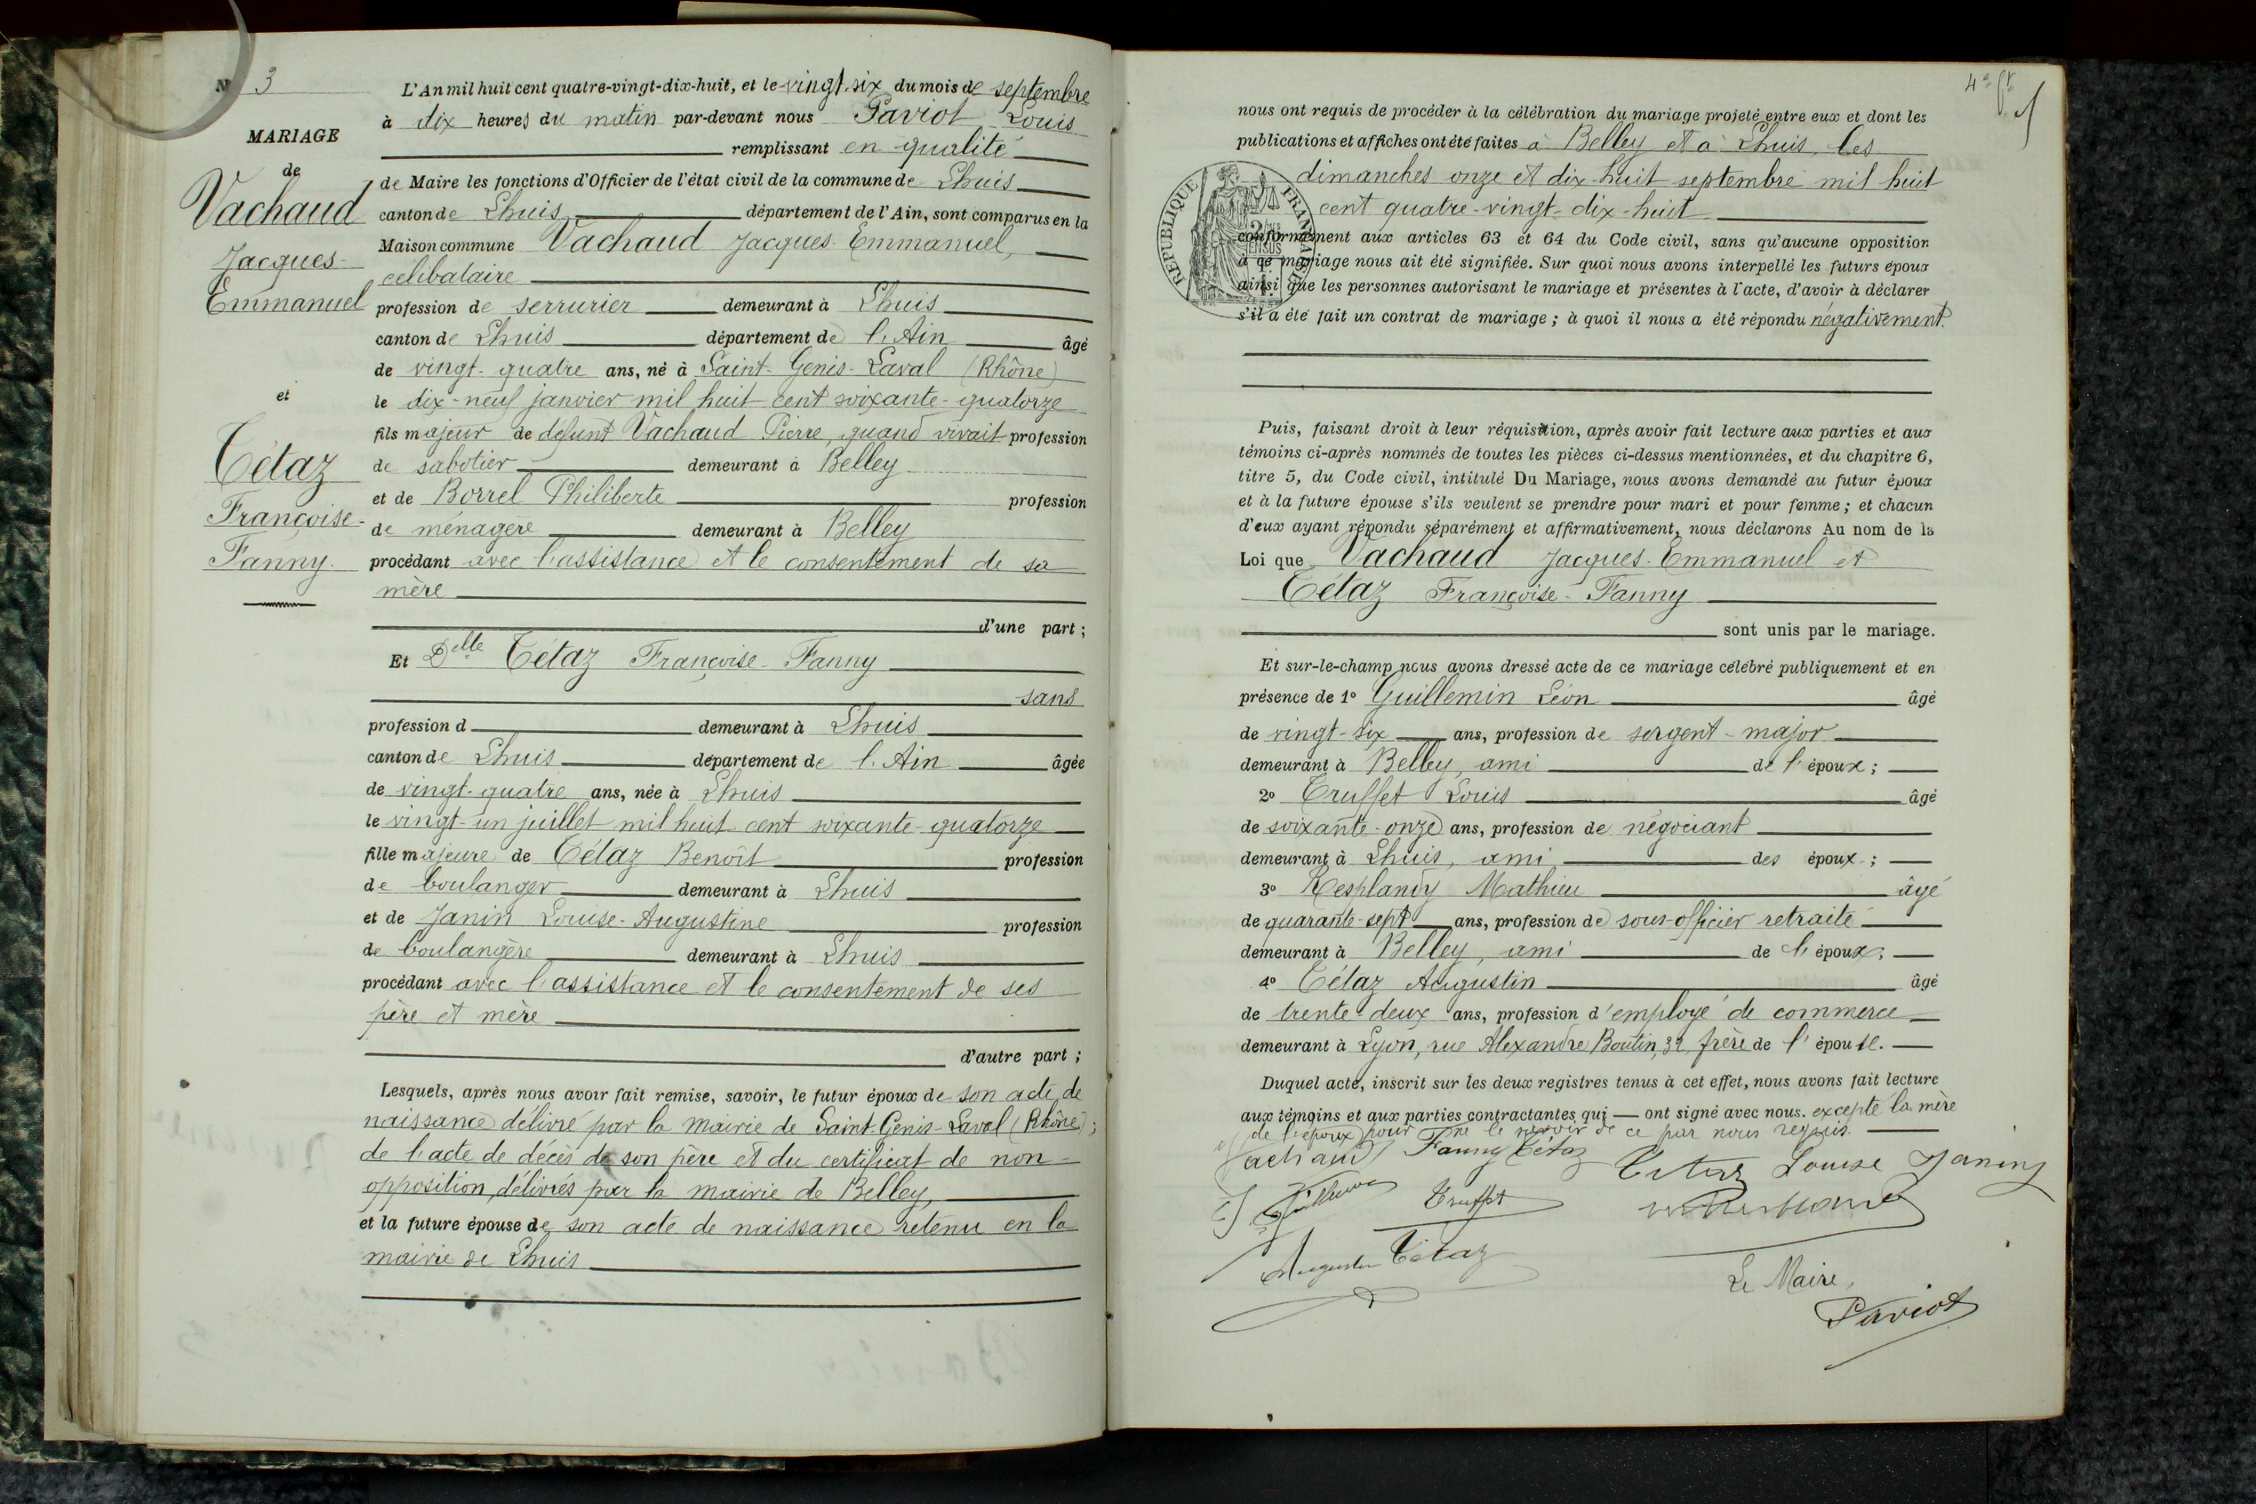 N° 3
MARIAGE
de
Vachaud
Jacques-
Emmanuel
et
Tétaz
Françoise-
Fanny.
L'An mil huit cent quatre-vingt-dix-huit, et le vingt-six du mois de septembre
à dix heures du matin par-devant nous Paviot Louis
remplissant en qualité
de Maire les fonctions d'Officier de l'état civil de la commune de Lhuis
canton de Lhuis département de l'Ain, sont comparus en la
Maison commune Vachaud Jacques-Emmanuel,
célibataire
profession de serrurier demeurant à Lhuis
canton de Lhuis département de l'Ain âgé
de vingt-quatre ans, né à Saint-Genis-Laval (Rhône)
le dix-neuf janvier mil huit cent soixante-quatorze
fils majeur de défunt Vachaud Pierre, quand vivait profession
de sabotier demeurant à Belley
et de Borrel Philiberte profession
de ménagère demeurant à Belley
procédant avec l'assistance et le consentement de sa
mère
d'une part ;
Et Delle Tétaz Françoise-Fanny
sans
profession d demeurant à Lhuis
canton de Lhuis département de l'Ain âgée
de vingt-quatre ans, née à Lhuis
le vingt-un juillet mil huit cent soixante-quatorze
fille majeure de Tétaz Benoît profession
de boulanger demeurant à Lhuis
et de Janin Louise-Augustine profession
de boulangère demeurant à Lhuis
procédant avec l'assistance et le consentement de ses
père et mère
d'autre part ;
Lesquels, après nous avoir fait remise, savoir, le futur époux de son acte de
naissance délivré par la mairie de Saint-Genis-Laval (Rhône) ;
de l'acte de décès de son père et du certificat de non-
opposition, délivrés par la mairie de Belley,
et la future épouse de son acte de naissance retenu en la
mairie de Lhuis
4e ft
nous ont requis de procéder à la célébration du mariage projeté entre eux et dont les
publications et affiches ont été faites à Belley et à Lhuis, les
dimanches onze et dix-huit septembre mil huit
cent quatre-vingt-dix-huit
RÉPUBLIQUE FRANÇAISE
conformément aux articles 63 et 64 du Code civil, sans qu'aucune opposition
à ce mariage nous ait été signifiée. Sur quoi nous avons interpellé les futurs époux
ainsi que les personnes autorisant le mariage et présentes à l'acte, d'avoir à déclarer
s'il a été fait un contrat de mariage ; à quoi il nous a été répondu négativement.
Puis, faisant droit à leur réquisition, après avoir fait lecture aux parties et aux
témoins ci-après nommés de toutes les pièces ci-dessus mentionnées, et du chapitre 6,
titre 5, du Code civil, intitulé Du Mariage, nous avons demandé au futur époux
et à la future épouse s'ils veulent se prendre pour mari et pour femme ; et chacun
d'eux ayant répondu séparément et affirmativement, nous déclarons Au nom de la
Loi que Vachaud Jacques-Emmanuel et
Tétaz Françoise-Fanny
sont unis par le mariage.
Et sur-le-champ nous avons dressé acte de ce mariage célébré publiquement et en
présence de 1° Guillemin Léon âgé
de vingt-six ans, profession de sergent-major
demeurant à Belley, ami de l'époux ;
2° Truffet Louis âgé
de soixante-onze ans, profession de négociant
demeurant à Lhuis, ami des époux ;
3° Resplandy Mathieu âgé
de quarante-sept ans, profession de sous-officier retraité
demeurant à Belley, ami de l'époux ;
4° Tétaz Augustin âgé
de trente-deux ans, profession d'employé de commerce
demeurant à Lyon, rue Alexandre Boutin, 32, frère de l'épouse.
Duquel acte, inscrit sur les deux registres tenus à cet effet, nous avons fait lecture
aux témoins et aux parties contractantes, qui ont signé avec nous. excepté la mère
de l'époux pour ne le savoir de ce par nous requis.
Vachaud Fanny Tétaz Tétaz Louise Janin
Guillemin Truffet
Augustin Tétaz
Le Maire,
Paviot